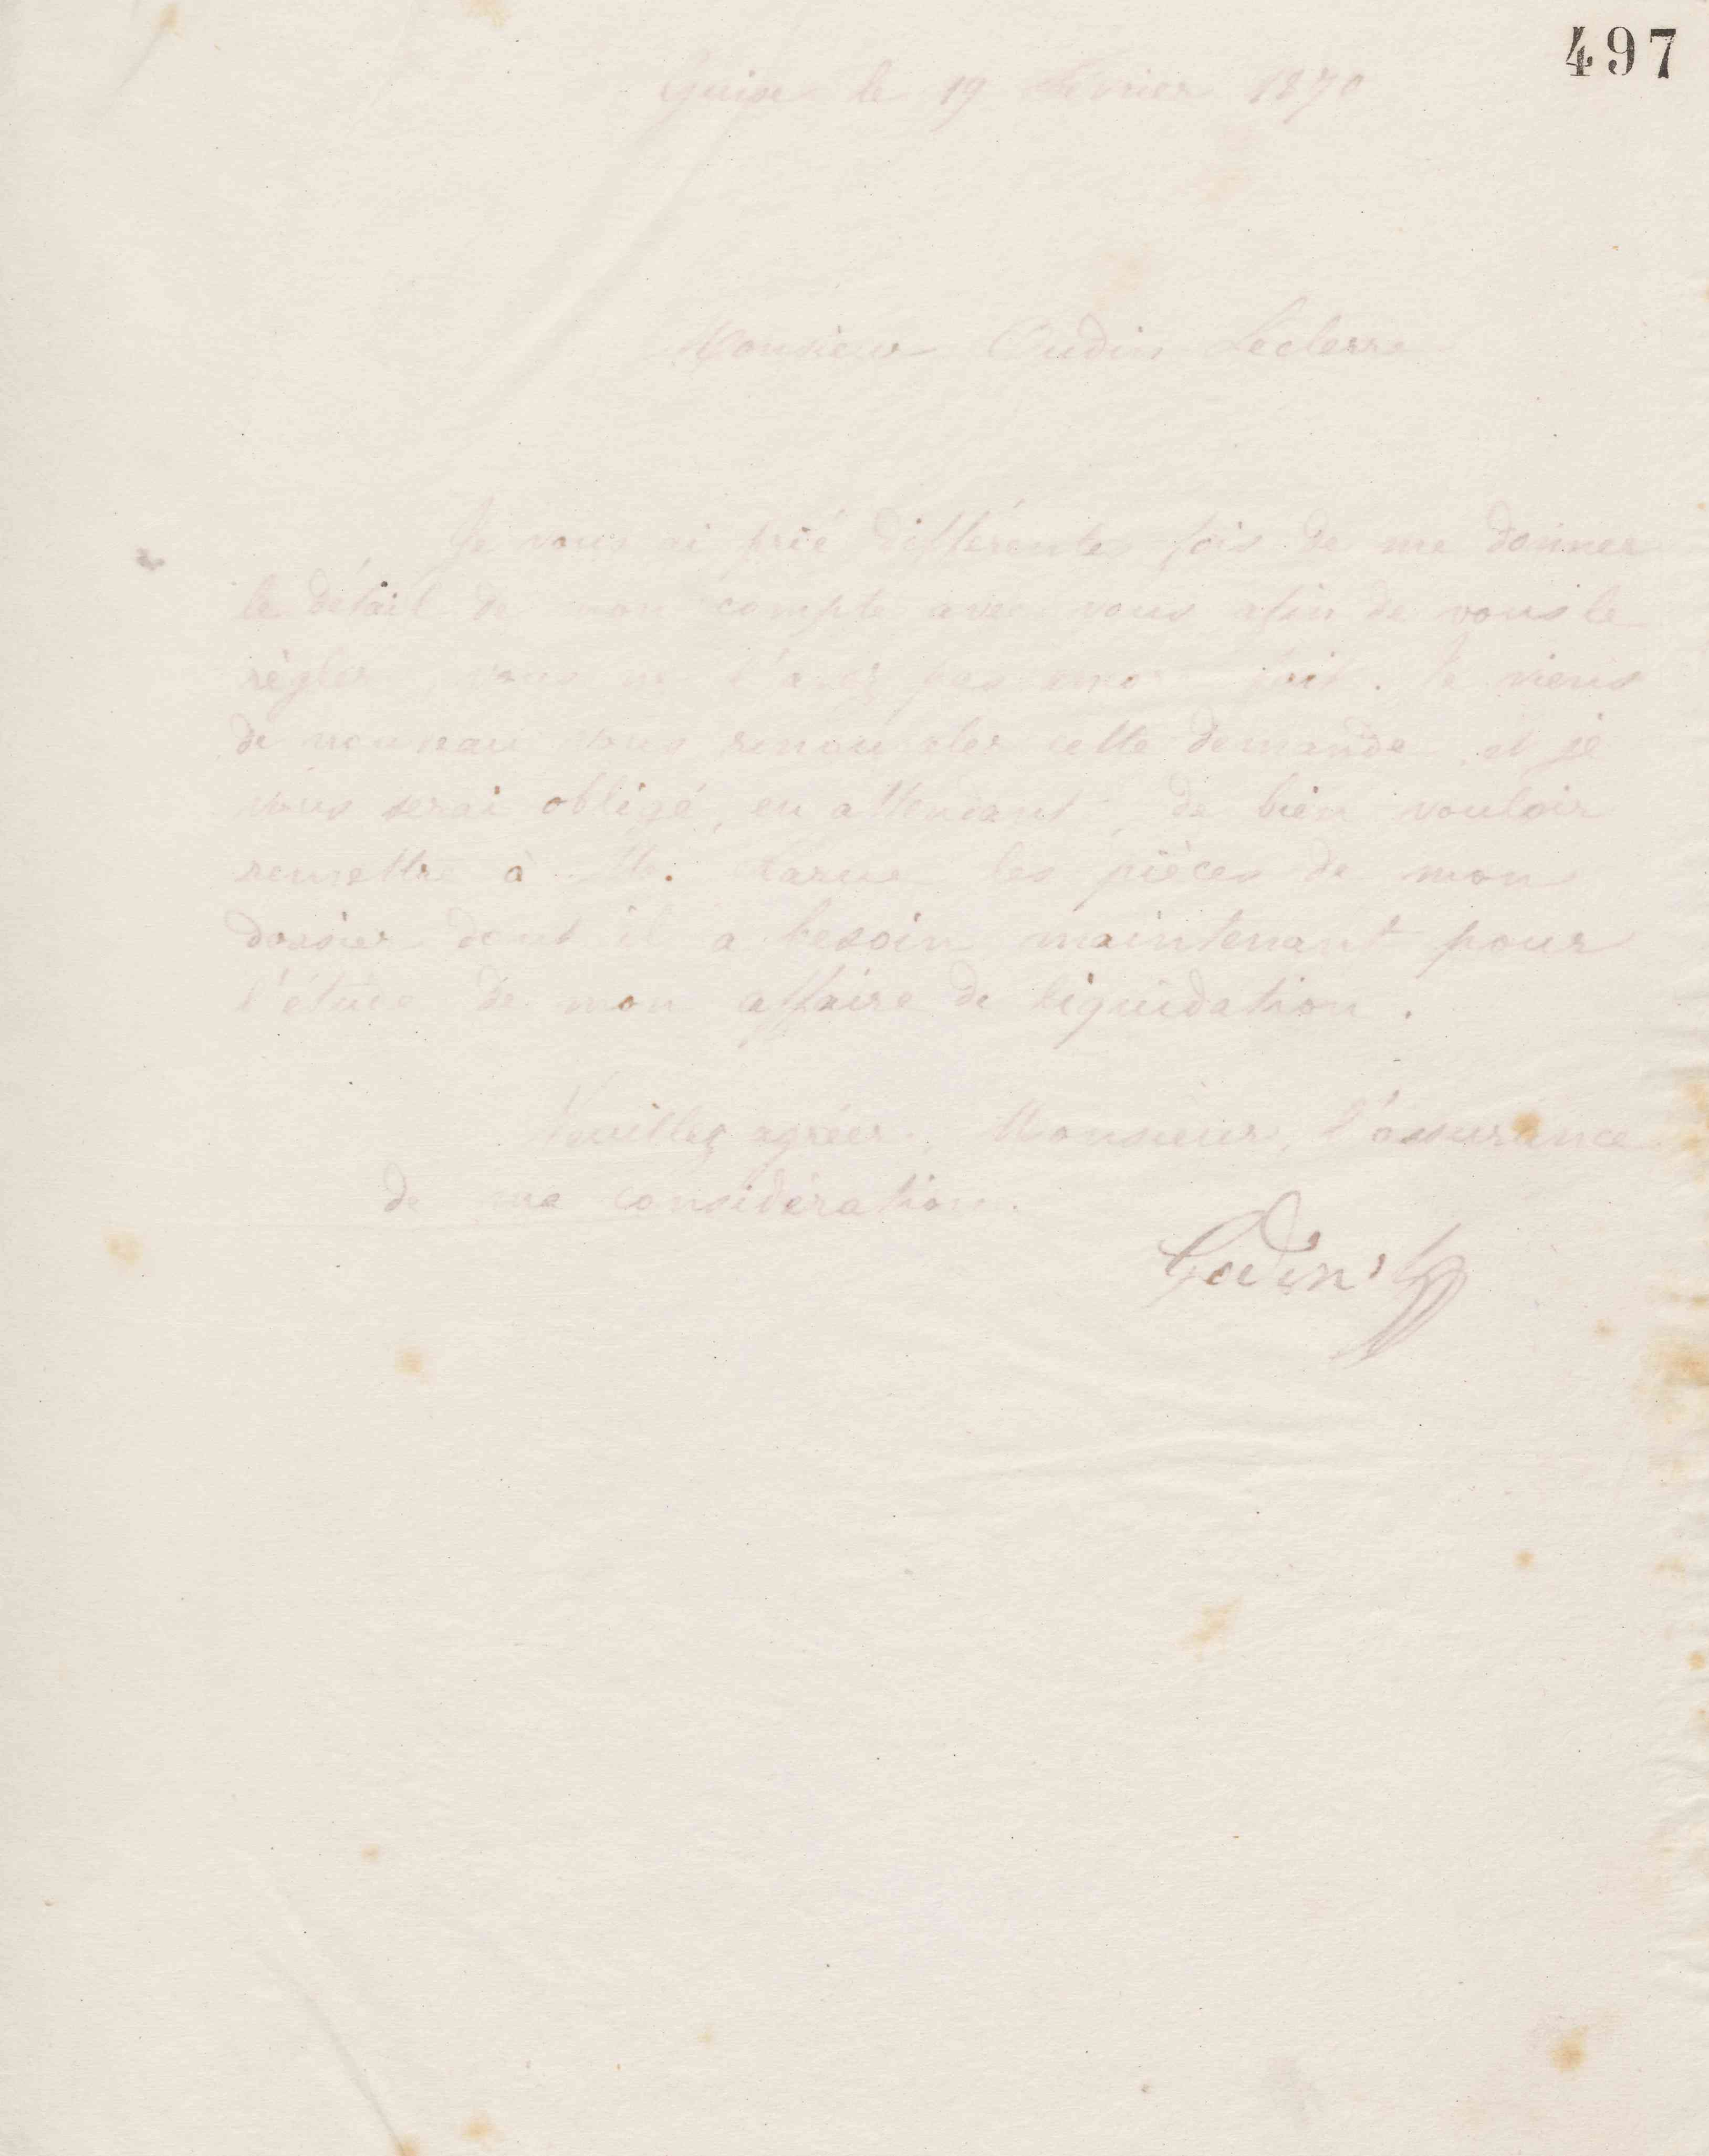 497
Guise le 19 Février 1870
Monsieur Oudin Leclerre
Je vous ai prié différentes fois de me donner
le détail de mon compte avec vous afin de vous le
régler vous ne l'avez pas encore fait. Je viens
de nouveau vous renouveler cette demande et je
vous serai obligé, en attendant, de bien vouloir
remettre à M. Larue les pièces de mon
dossier dont il a besoin maintenant pour
l'étude de mon affaire de liquidation.
Veuillez agréer, Monsieur, l'assurance
de ma considération.
Godin